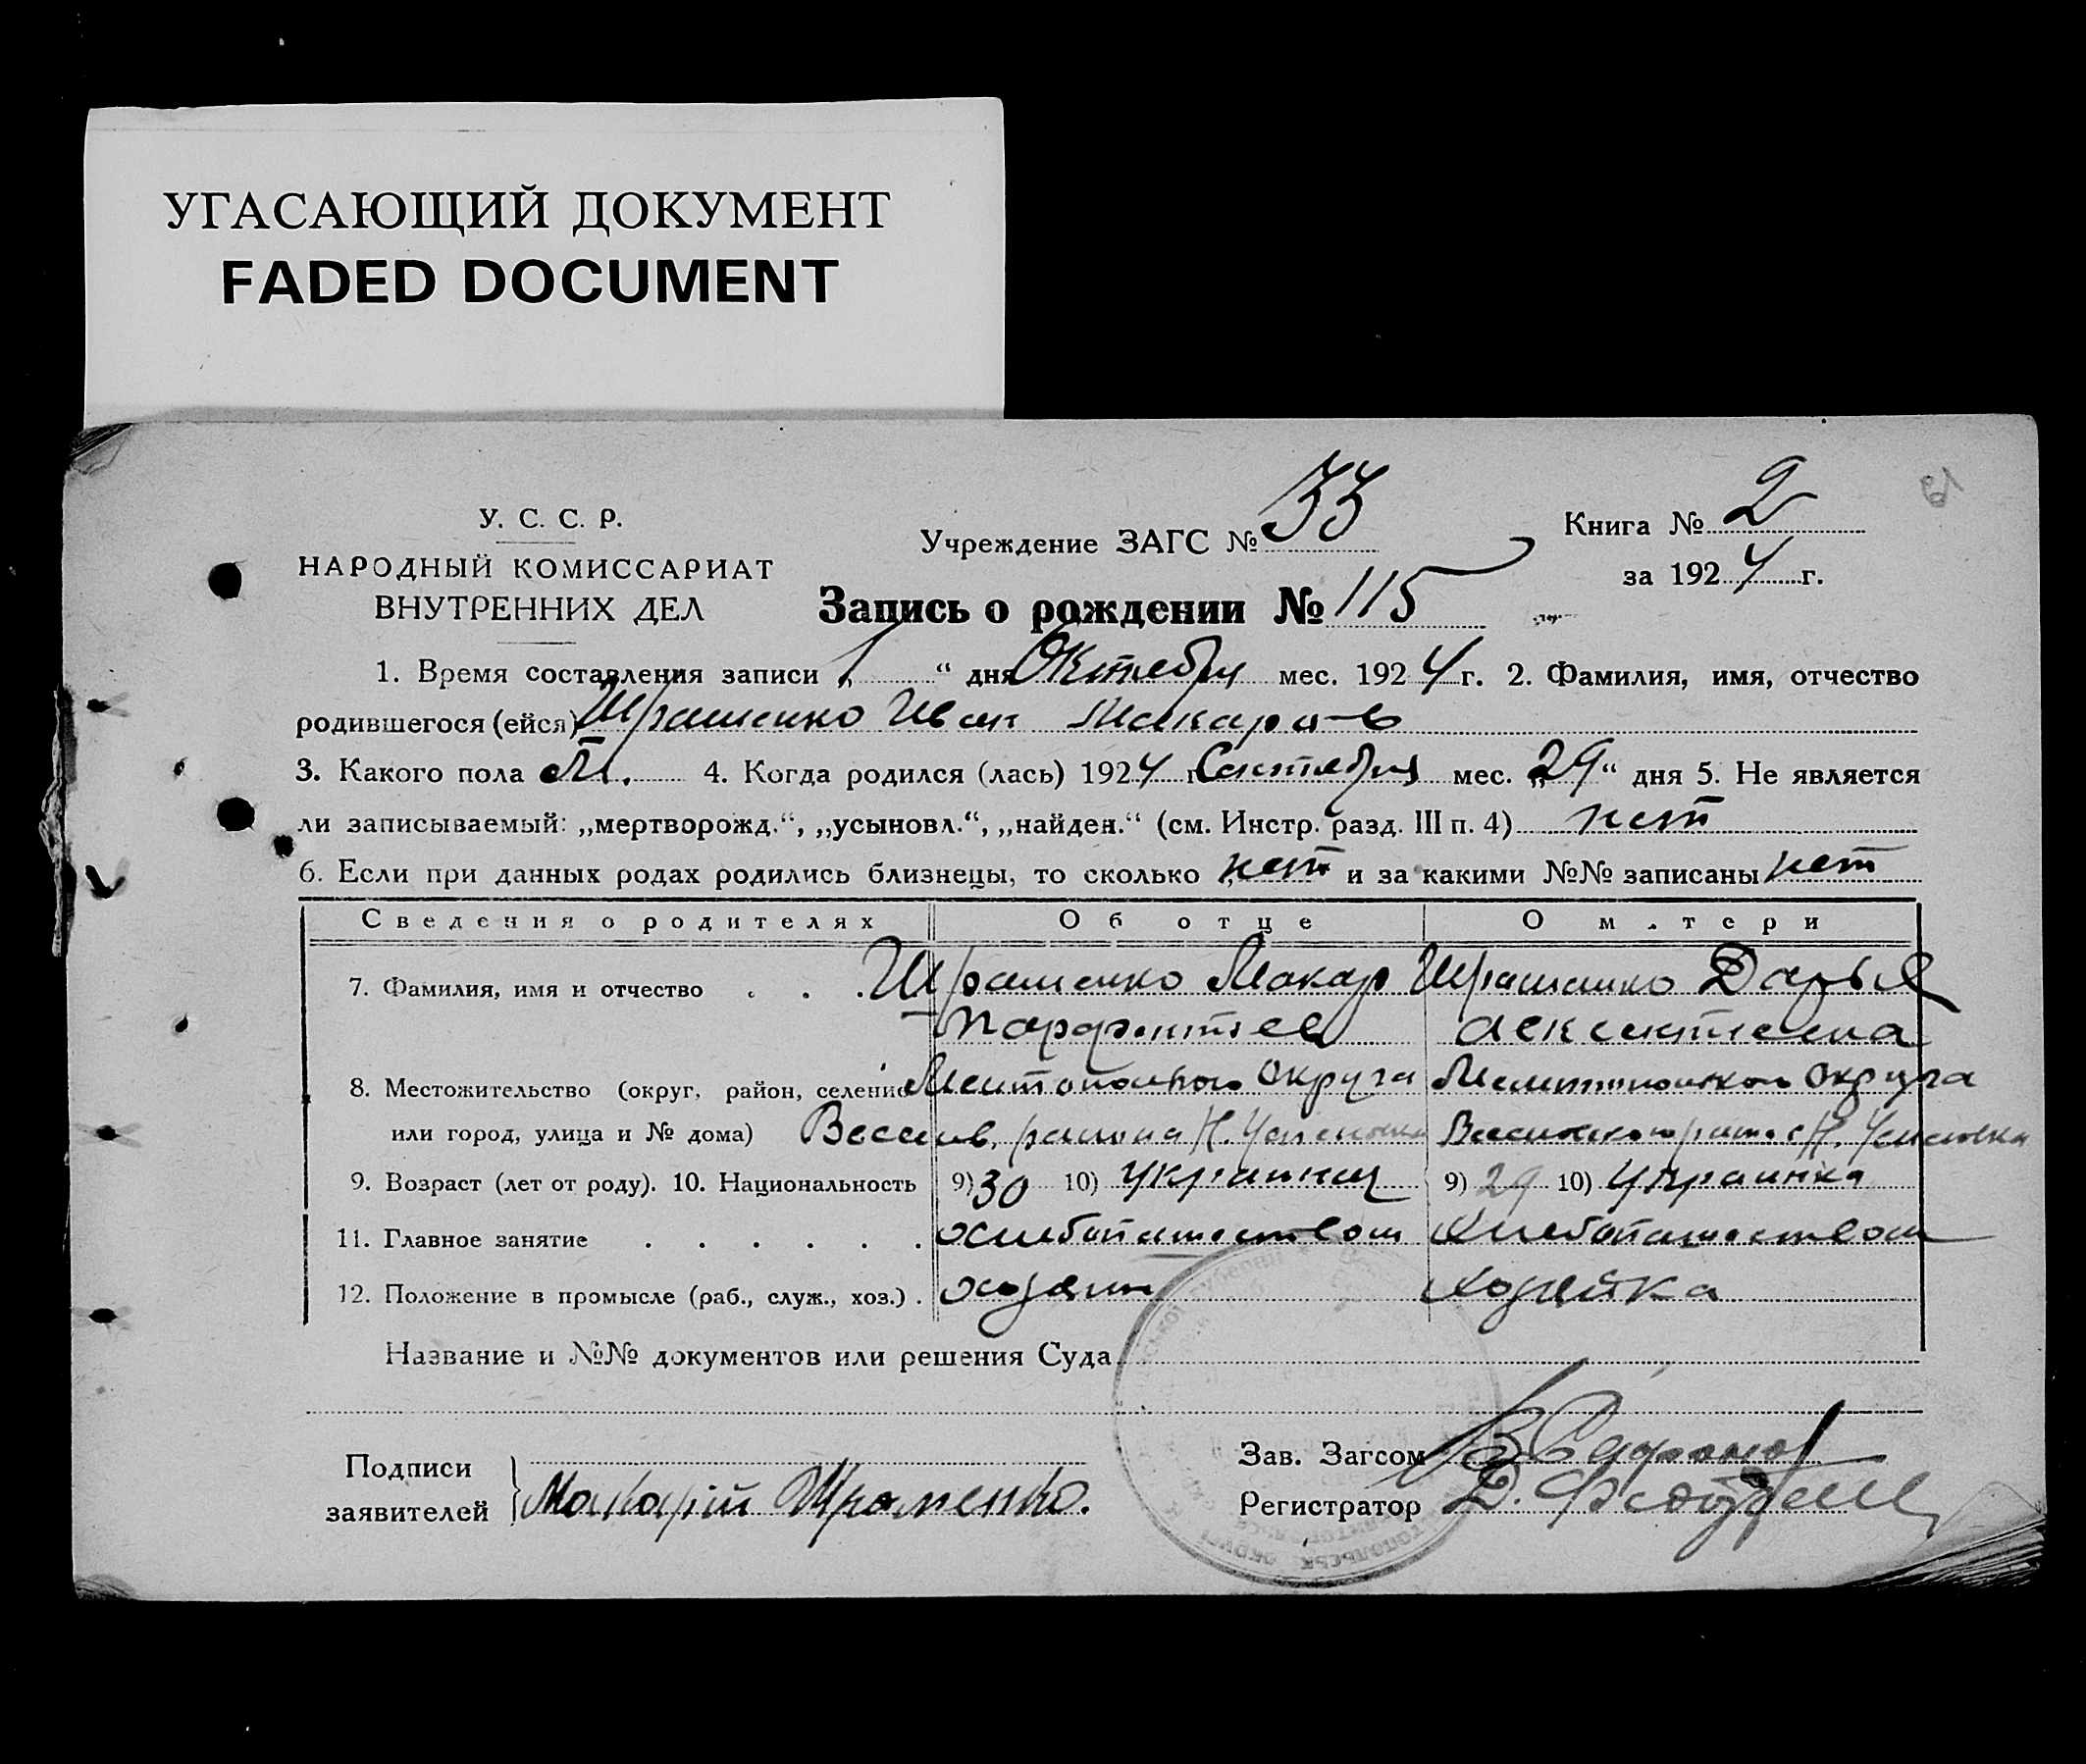 УГАСАЮЩИЙ ДОКУМЕНТ
FADED DOCUMENT
У. С. С. Р.
НАРОДНЫЙ КОМИССАРИАТ
ВНУТРЕННИХ ДЕЛ
Учреждение ЗАГС № 33
Книга № 2
за 1924 г.
Запись о рождении № 115
1. Время составления записи „1“ дня Октября мес. 1924 г. 2. Фамилия, имя, отчество
родившегося (ейся) Иван Макаров
3. Какого пола М. 4. Когда родился (лась) 1924 г. Сентября мес. „29“ дня 5. Не является
ли записываемый: „мертворожд.“, „усыновл.“, „найден.“ (см. Инстр. разд. III п. 4) нет
6. Если при данных родах родились близнецы, то сколько нет и за какими №№ записаны нет
Сведения о родителях Об отце О м.тери
7. Фамилия, имя и отчество . . . Макар Дарья
Парфентьев
8. Местожительство (округ, район, селение Мелитопольского Округа Мелитопольского Округа
или город, улица и № дома) Весел в. района Н. Успеновка Н. Успеновка
9. Возраст (лет от роду). 10. Национальность 9) 30 10) Украинец 9) 29 10) Украинка
11. Главное занятие . . . . . . Хлебопашеством Хлебопашеством
12. Положение в промысле (раб., служ., хоз.) . хозяин хозяйка
Название и №№ документов или решения Суда
Подписи
заявителей Макарій
Зав. Загсом
Регистратор